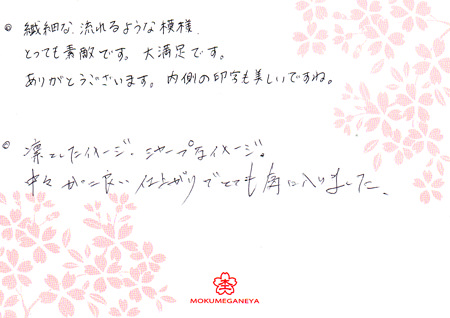 ◎ 繊細な、流れるような模様、
とっても素敵です。大満足です。
ありがとうございます。内側の印字も美しいですね。
◎ 凛としたイメージ、シャープなイメージ。
良い仕上がりでとても気に入りました。
MOKUMEGANEYA